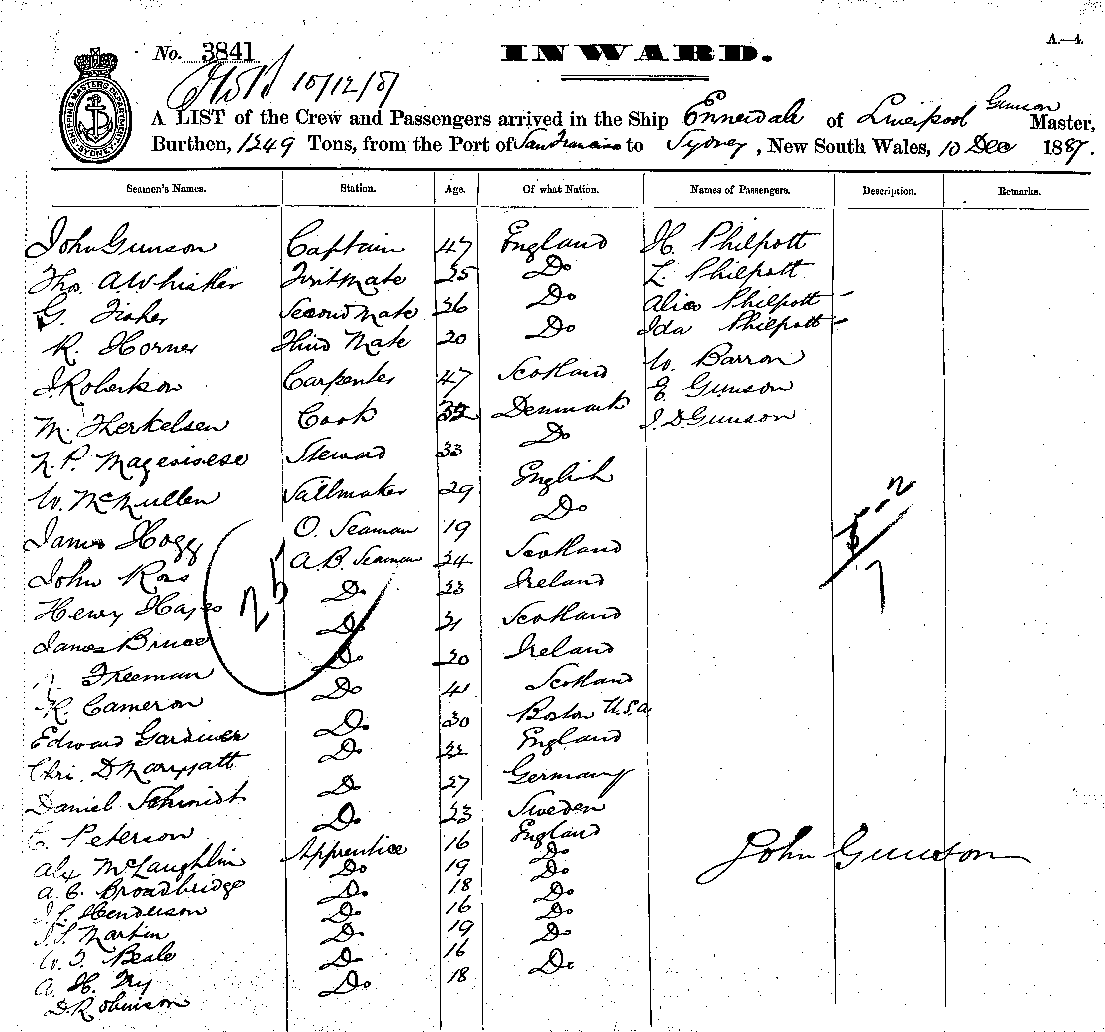 A.—4.
No. 3841 INWARD.
10/12/87
A LIST of the Crew and Passengers arrived in the Ship Ennerdale of Liverpool Gunson Master,
Burthen, 1249 Tons, from the Port of San Francisco to Sydney, New South Wales, 10 Dec 1887.
SHIPPING MASTERS DEPARTMENT SYDNEY
Seamen's Names. Station. Age. Of what Nation. Names of Passengers. Description. Remarks.
John Gunson Captain 47 England H Philpott
Thos A Whisker First Mate 25 Do L Philpott
G. Fisher Second Mate 26 Do Alice Philpott
R. Horner Third Mate 20 Do Ida Philpott
J Robertson Carpenter 47 Scotland W. Barron
M. Therkelsen Cook Denmark E Gunson
N. P. Steward 33 Do J D Gunson
W. McMullen Sailmaker 29 English
James Hogg O. Seaman 19 Do
John Ross A.B. Seaman 24 Scotland
Henry Hayes Do 23 Ireland
James Bruce Do 21 Scotland
Freeman Do 20 Ireland
R. Cameron Do 41 Scotland
Edward Gardiner Do 30 Boston U.S.A.
Chri. D Marryatt Do 22 England
Daniel Schmidt Do 27 Germany
C. Peterson Do 23 Sweden
Alex McLaughlin Apprentice 16 England
A. C. Broadbridge Do 19 Do
J. S. Henderson Do 18 Do
J. S. Martin Do 16 Do
W. J. Beale Do 19 Do
A. H. Fry Do 16 Do
D. Robinson Do 18 Do
25
5-2
7
John Gunson